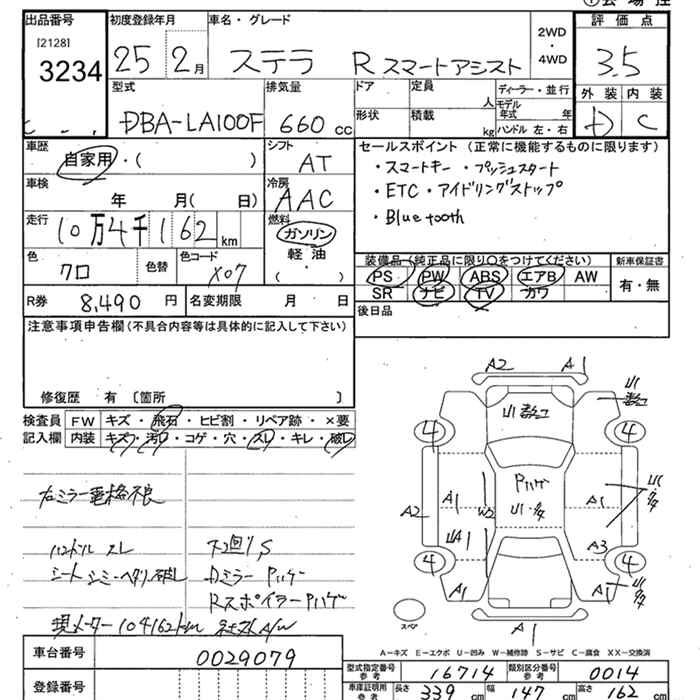 出品番号
[2128]
3234
初度登録年月
25 2月
車名・グレード
ステラ R スマートアシスト
2WD
・
4WD
評価点
3.5
外装 内装
D C
型式
DBA-LA100F
排気量
660 cc
ドア
形状
定員
人
積載
kg
ディーラー・並行
モデル年式 年
ハンドル 左・右
車歴
自家用・( )
シフト
AT
車検
年 月( 日)
冷房
AAC
走行
10万4千162km
燃料
ガソリン
軽油
( )
色
クロ
色替
色コード
X07
R券
8,490 円
名変期限
月 日
セールスポイント (正常に機能するものに限ります)
・スマートキー ・プッシュスタート
・ETC・アイドリングストップ
・Bluetooth
装備品(純正品に限り○をつけてください)
PS PW ABS エアB AW
SR ナビ TV カワ
新車保証書
有・無
後日品
注意事項申告欄(不具合内容等は具体的に記入して下さい)
修復歴 有 〔箇所 〕
検査員記入欄
FW キズ・飛石・ヒビ割・リペア跡・×要
内装 キズ・汚レ・コゲ・穴・スレ・キレ・破レ
右ミラー電格不良
ハンドル スレ
シート シミ・ヘタリ・破レ
現メーター104162km
下回りS
Dミラー Pハゲ
Rスポイラー Pハゲ
A2 A1
4 4
A2 A1 W2 A1
Pハゲ
A3
4 4
A1 A1
A1
スペア
A-キズ E-エクボ U-凹み W-補修跡 S-サビ C-腐食 XX-交換済
車台番号
0029079
登録番号
型式指定番号
参考
16714
類別区分番号
参考
0014
車庫証明用
参考
長さ 339 cm
幅 147 cm
高さ 162 cm